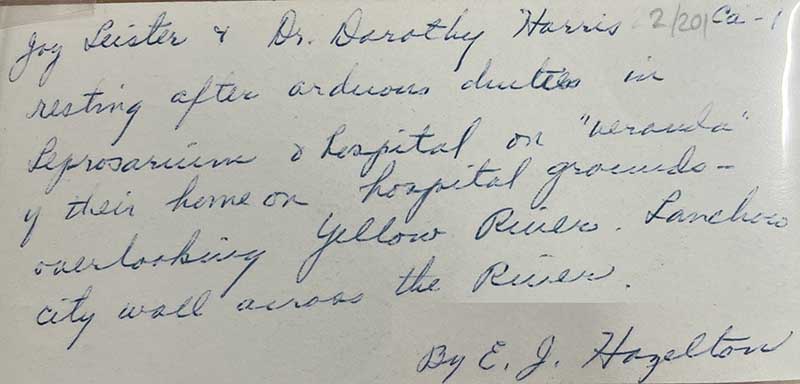 Joy Leister & Dr. Dorothy Harris 2/201 Ca-1
resting after arduous duties in
Leprosarium & hospital on "veranda"
of their home on hospital grounds -
overlooking Yellow River. Lanchow
city wall across the River.
By E. J. Hazelton